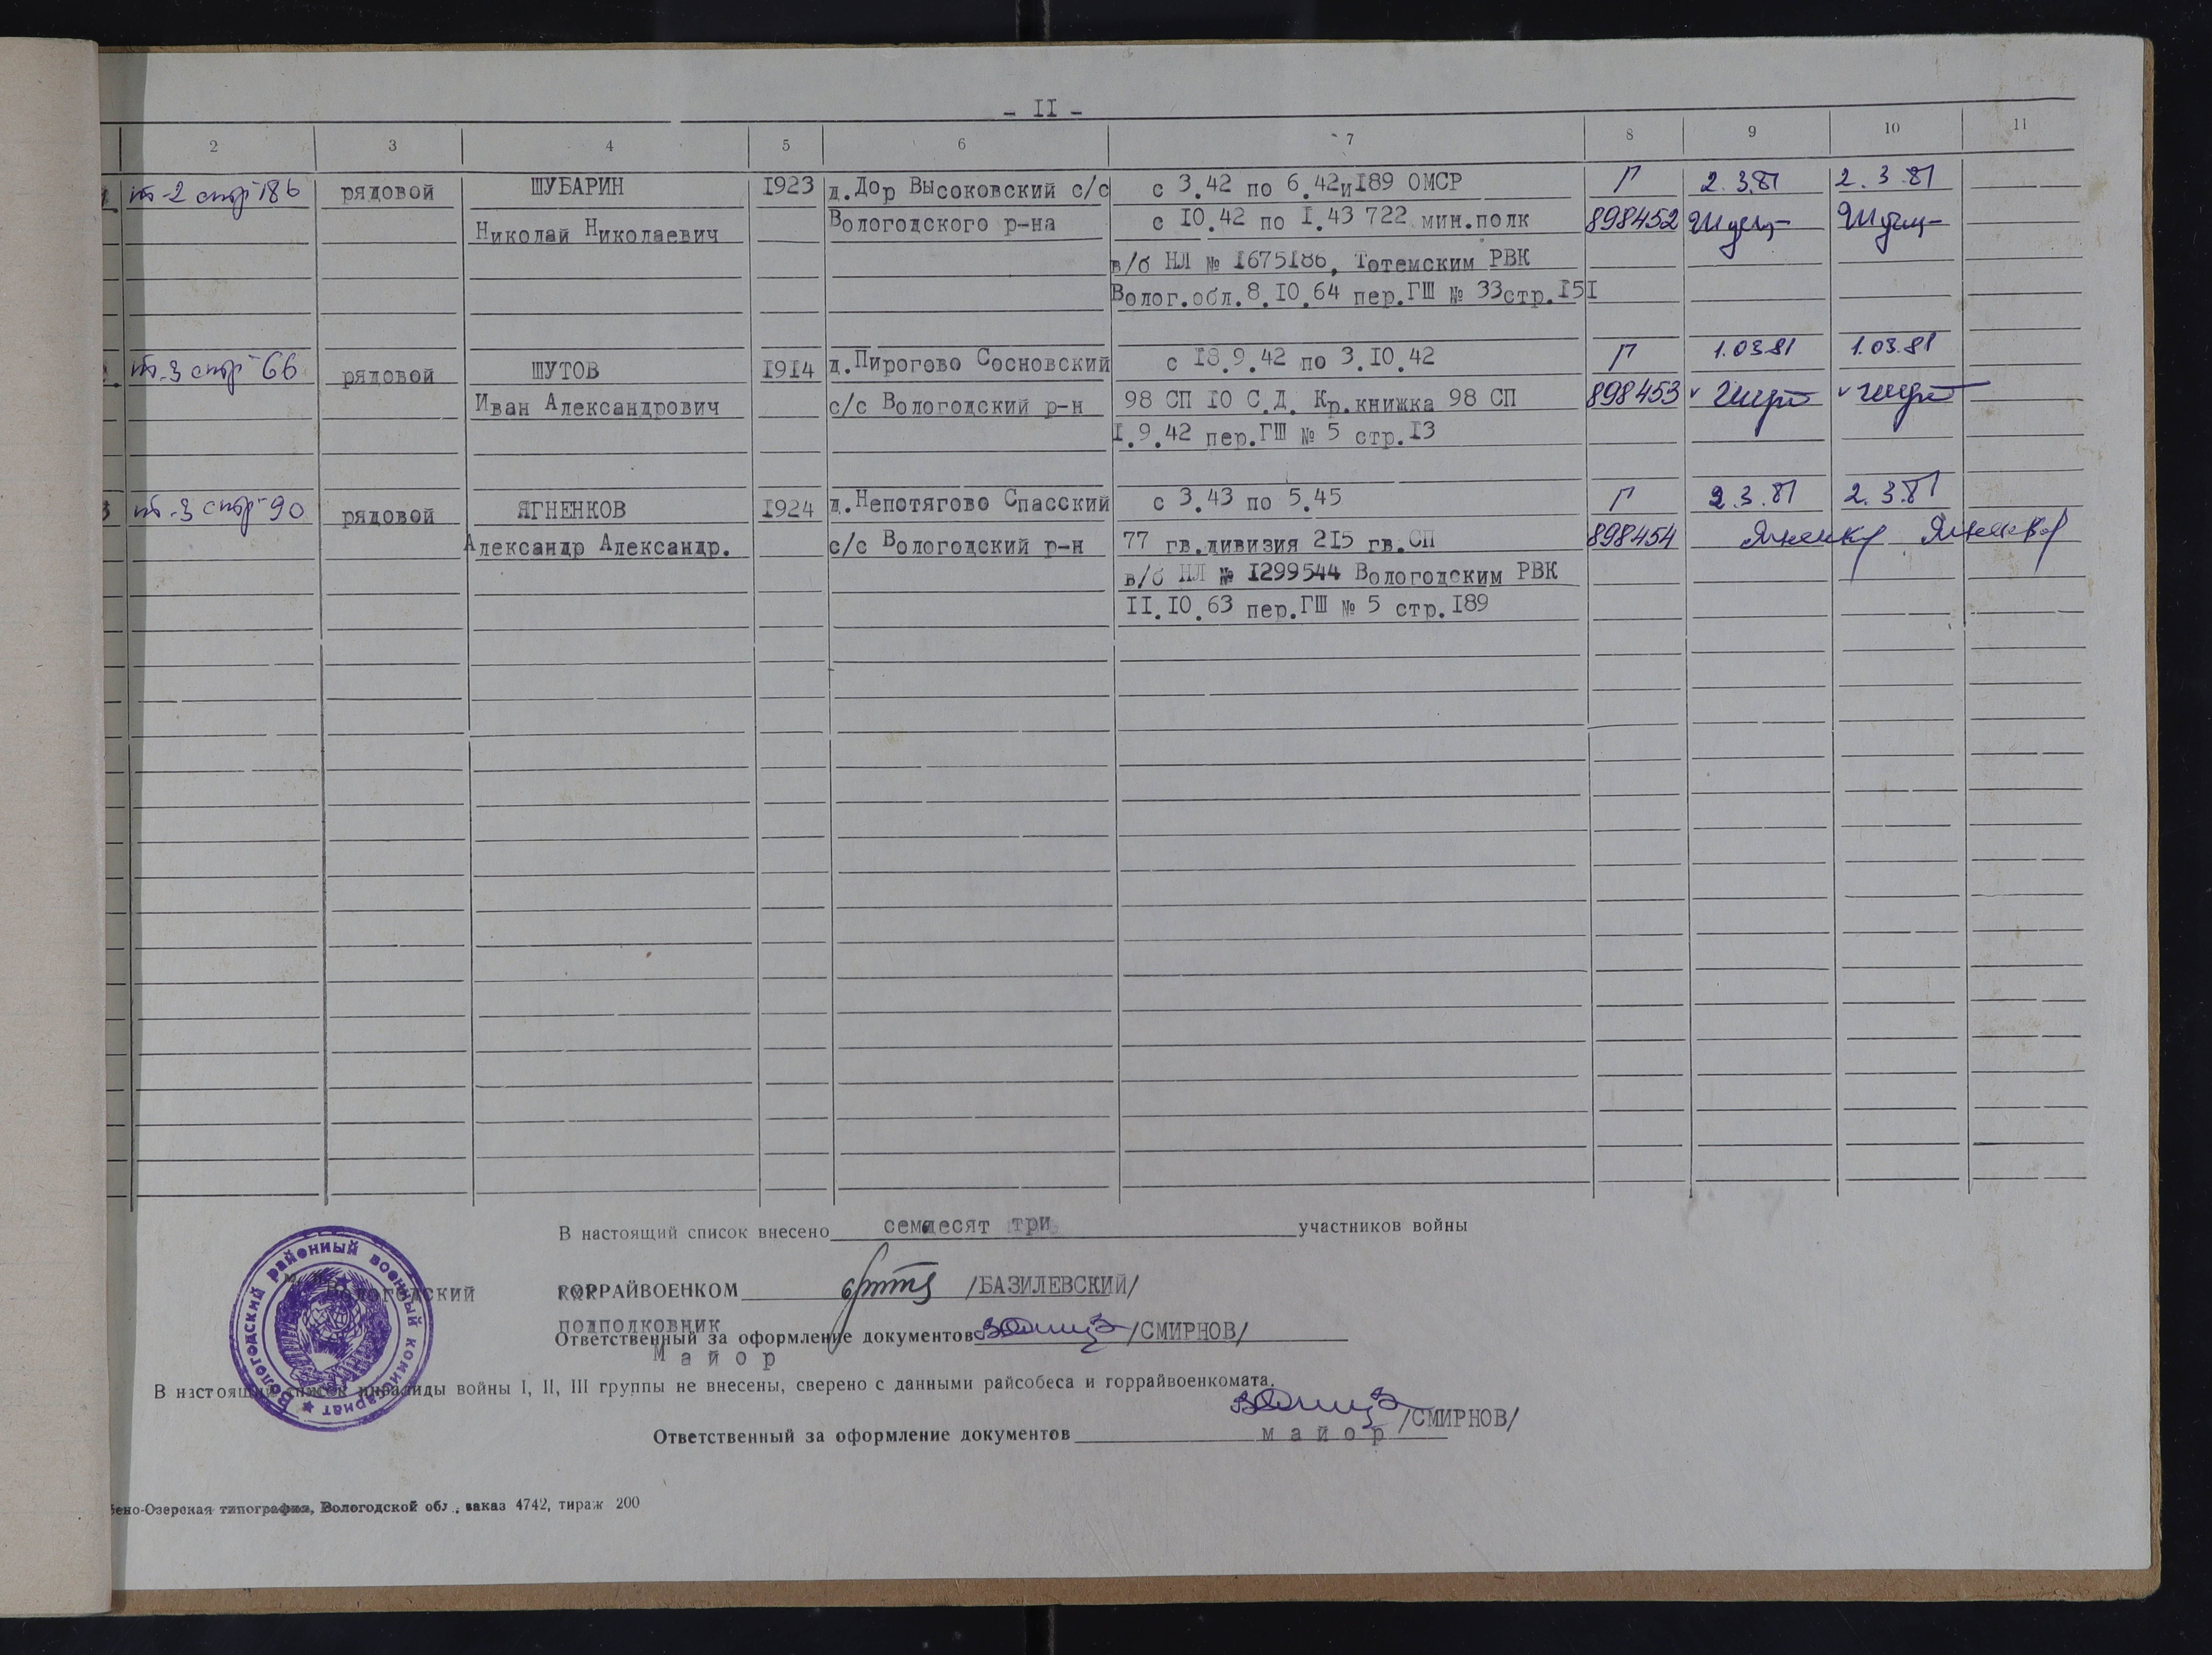 - II -
2 3 4 5 6 7 8 9 10 11
т-2 стр 186 рядовой ШУБАРИН 1923 д.Дор Высоковский с/с с 3.42 по 6.42и189 ОМСР Г 2.3.81 2.3.81
Николай Николаевич Вологодского р-на с 10.42 по 1.43 722 мин.полк 898452
в/б НЛ № 1675186, Тотемским РВК
Волог.обл.8.10.64 пер.ГШ № 33стр.151
т-3 стр 66 рядовой ШУТОВ 1914 д.Пирогово Сосновский с 18.9.42 по 3.10.42 Г 1.03.81 1.03.81
Иван Александрович с/с Вологодский р-н 98 СП 10 С.Д. Кр.книжка 98 СП 898453
1.9.42 пер.ГШ № 5 стр.13
3 т-3 стр 90 рядовой ЯГНЕНКОВ 1924 д.Непотягово Спасский с 3.43 по 5.45 Г 2.3.81 2.3.81
Александр Александр. с/с Вологодский р-н 77 гв.дивизия 215 гв.СП 898454
в/б НЛ № 1299544 Вологодским РВК
II.10.63 пер.ГШ № 5 стр.189
В настоящий список внесено семдесят три участников войны
Вологодский ГОРРАЙВОЕНКОМ /БАЗИЛЕВСКИЙ/
подполковник
Ответственный за оформление документов /СМИРНОВ/
Майор
В настоящий список инвалиды войны I, II, III группы не внесены, сверено с данными райсобеса и горрайвоенкомата.
Ответственный за оформление документов майор /СМИРНОВ/
Вологодский районный военный комиссариат
бено-Озерская типография, Вологодской обл., заказ 4742, тираж 200